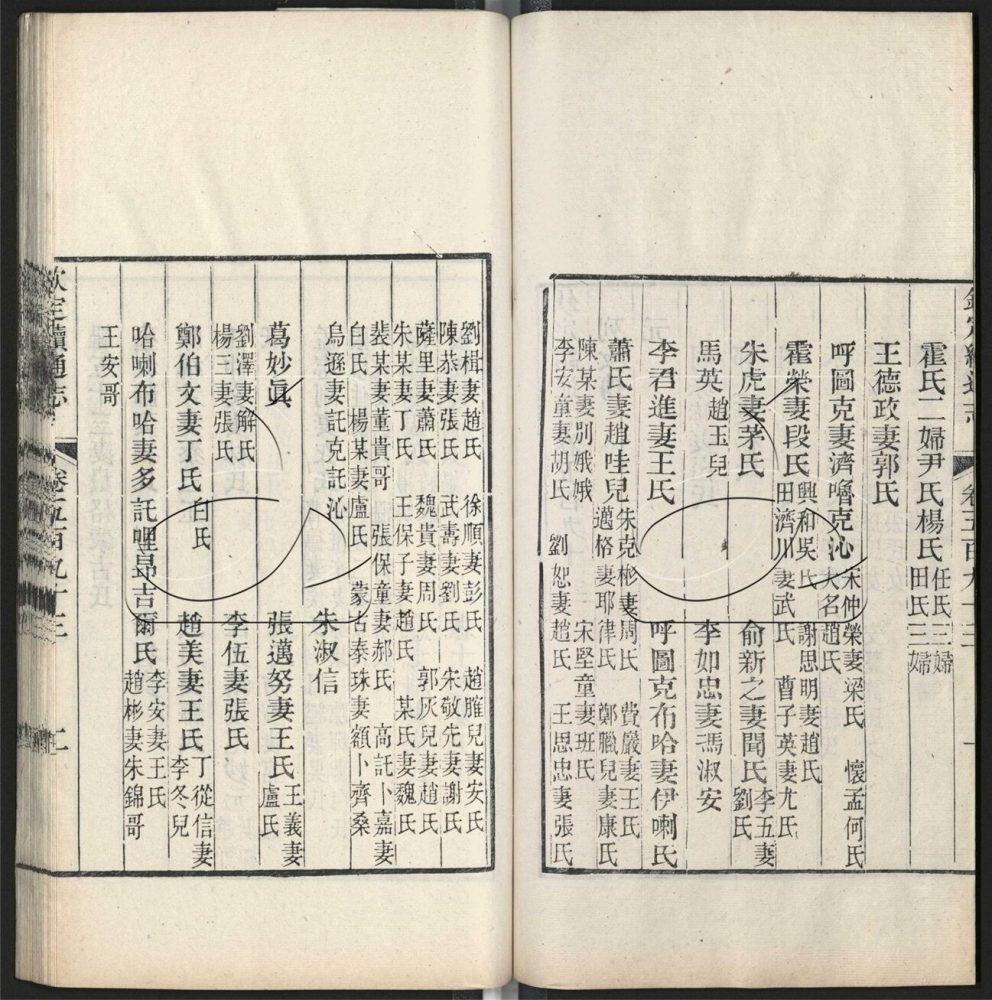 霍氏二婦尹氏楊氏 任氏三婦
田氏三婦
王德政妻郭氏
呼圖克妻濟嚕克沁 宋仲榮妻梁氏 懷孟何氏
大名趙氏
霍榮妻段氏 興和吳氏 謝思明妻趙氏
田濟川妻武氏 曹子英妻尤氏
朱虎妻茅氏 俞新之妻聞氏 李五妻
劉氏
馬英 趙玉兒 李如忠妻馮淑安
李君進妻王氏 呼圖克布哈妻伊喇氏
蕭氏妻趙哇兒 朱克彬妻周氏 費嚴妻王氏
邁格妻耶律氏 鄭臘兒妻康氏
陳某妻別娥娥 宋堅童妻班氏
李安童妻胡氏 劉恕妻趙氏 王思忠妻張氏
劉楫妻趙氏 徐順妻彭氏 趙脽兒妻安氏
陳恭妻張氏 武壽妻劉氏 宋敬先妻謝氏
薩里妻蕭氏 魏貴妻周氏 郭灰兒妻趙氏
朱某妻丁氏 王保子妻趙氏 某氏妻魏氏
裴某妻董貴哥 張保童妻郝氏 高託卜嘉妻
白氏 楊某妻盧氏 蒙古泰珠妻額卜齊桑
烏遜妻託克託沁
葛妙眞 朱淑信
劉澤妻解氏 張邁努妻王氏 王義妻
楊三妻張氏 李伍妻張氏 盧氏
鄭伯文妻丁氏 白氏 趙美妻王氏 丁從信妻
李冬兒
哈喇布哈妻多託哩昻吉爾氏 李安妻王氏
趙彬妻朱錦哥
王安哥
欽定續通志 卷五百九十三 二